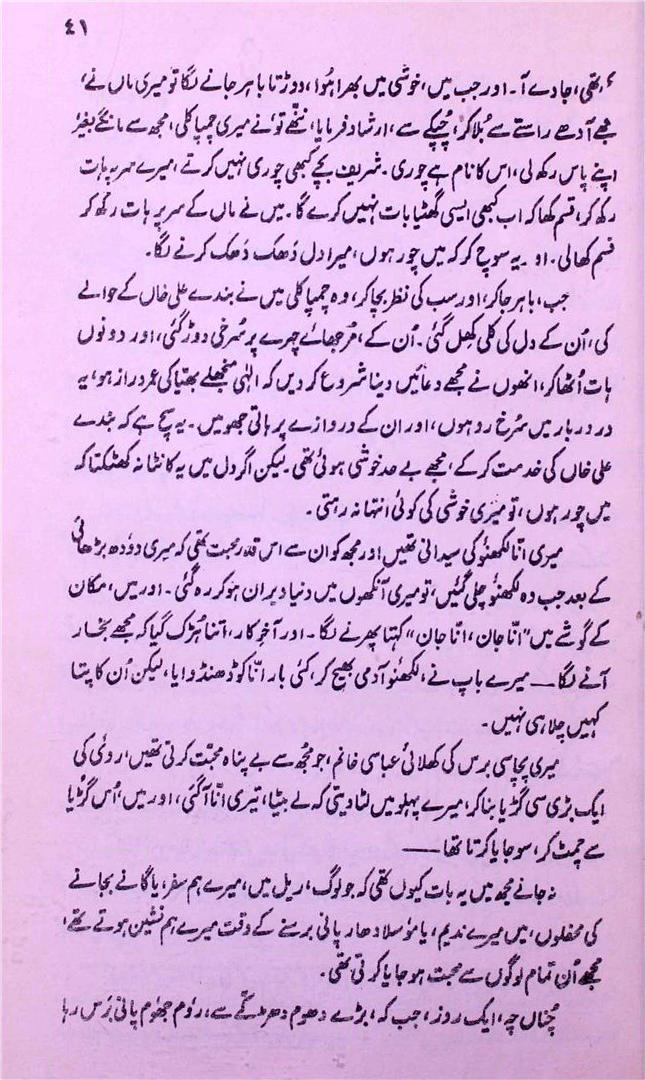 ۴۱
کھی، جا دے آ۔ اور جب میں، خوشی میں بھرا ہُوا، دوڑتا باہر جانے لگا تو میری ماں نے،
مجھے آدھے راستے سے بُلا کر، چُپکے سے، ارشاد فرمایا، ننھّے تُو نے میری چمپا کلی، مجھ سے مانگے بغیر
اپنے پاس رکھ لی، اس کا نام ہے چوری۔ شریف بچے کبھی چوری نہیں کرتے، میرے سر پہ ہات
رکھ کر، قسم کھا کہ اب کبھی ایسی گھٹیا بات نہیں کرے گا۔ میں نے ماں کے سر پر ہات رکھ کر
قسم کھا لی۔ او یہ سوچ کر کہ میں چور ہوں، میرا دل دَھک دَھک کرنے لگا۔
جب، باہر جا کر، اور سب کی نظر بچا کر، وہ چمپا کلی میں نے بندے علی خاں کے حوالے
کی، اُن کے دل کی کلی کِھل گئی۔ اُن کے، مُرجھائے چہرے پر سُرخی دوڑ گئی، اور دونوں
ہات اُٹھا کر، انھوں نے مجھے دعائیں دینا شروع کر دیں کہ الٰہی منجھلے بھیّا کی عمر دراز ہو، یہ
در دربار میں سُرخ رو ہوں، اور ان کے دروازے پر ہاتی جھومیں۔ یہ سچ ہے کہ بندے
علی خاں کی خدمت کر کے، مجھے بے حد خوشی ہوئی تھی۔ لیکن اگر دل میں یہ کانٹا نہ کھٹکتا کہ
میں چور ہوں، تو میری خوشی کی کوئی انتہا نہ رہتی۔
میری انّا لکھنؤ کی سیدانی تھیں اور مجھ کو ان سے اس قدر محبت تھی کہ میری دودھ بڑھائی
کے بعد جب وہ لکھنؤ چلی گئیں، تو میری آنکھوں میں دنیا ویران ہو کر رہ گئی۔ اور میں، مکان
کے گوشے میں "انّا جان، انّا جان" کہتا پھرنے لگا۔ اور آخر کار، اتنا ہُڑک گیا کہ مجھے بخار
آنے لگا — میرے باپ نے، لکھنؤ آدمی بھیج کر، کئی بار انّا کو ڈھنڈوایا، لیکن اُن کا پتا
کہیں چلا ہی نہیں۔
میری پچاسی برس کی کھلائی عباسی خانم، جو مجُھ سے بے پناہ محبّت کرتی تھیں، روئی کی
ایک بڑی سی گڑیا بنا کر، میرے پہلو میں لٹا دیتی کہ لے بیٹا، تیری انّا آ گئی، اور میں، اُس گُڑیا
سے چمٹ کر، سو جایا کرتا تھا —
نہ جانے مجھ میں یہ بات کیوں تھی کہ جو لوگ، ریل میں، میرے ہم سفر، یا گانے بجانے
کی محفلوں، میں میرے ندیم، یا موسلا دھار پانی برسنے کے وقت میرے ہم نشین ہوتے تھے،
مجھے اُن تمام لوگوں سے محبت ہو جایا کرتی تھی۔
چُناں چہ، ایک روز، جب کہ، بڑے دھوم دھڑکّے سے، رُوم جُھوم پانی بَرس رہا